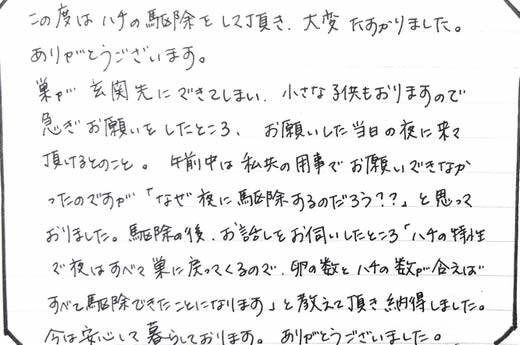 この度はハチの駆除をして頂き、大変たすかりました。
ありがとうございます。
巣が玄関先にできてしまい、小さな子供もおりますので
急ぎお願いをしたところ、お願いした当日の夜に来て
頂けるとのこと。午前中は私共の用事でお願いできなか
ったのですが「なぜ夜に駆除するのだろう??」と思って
おりました。駆除の後、お話しをお伺いしたところ「ハチの特性
で夜はすべて巣に戻ってくるので、卵の数とハチの数が合えば
すべて駆除できたことになります」と教えて頂き納得しました。
今は安心して暮らしております。ありがとうございました。